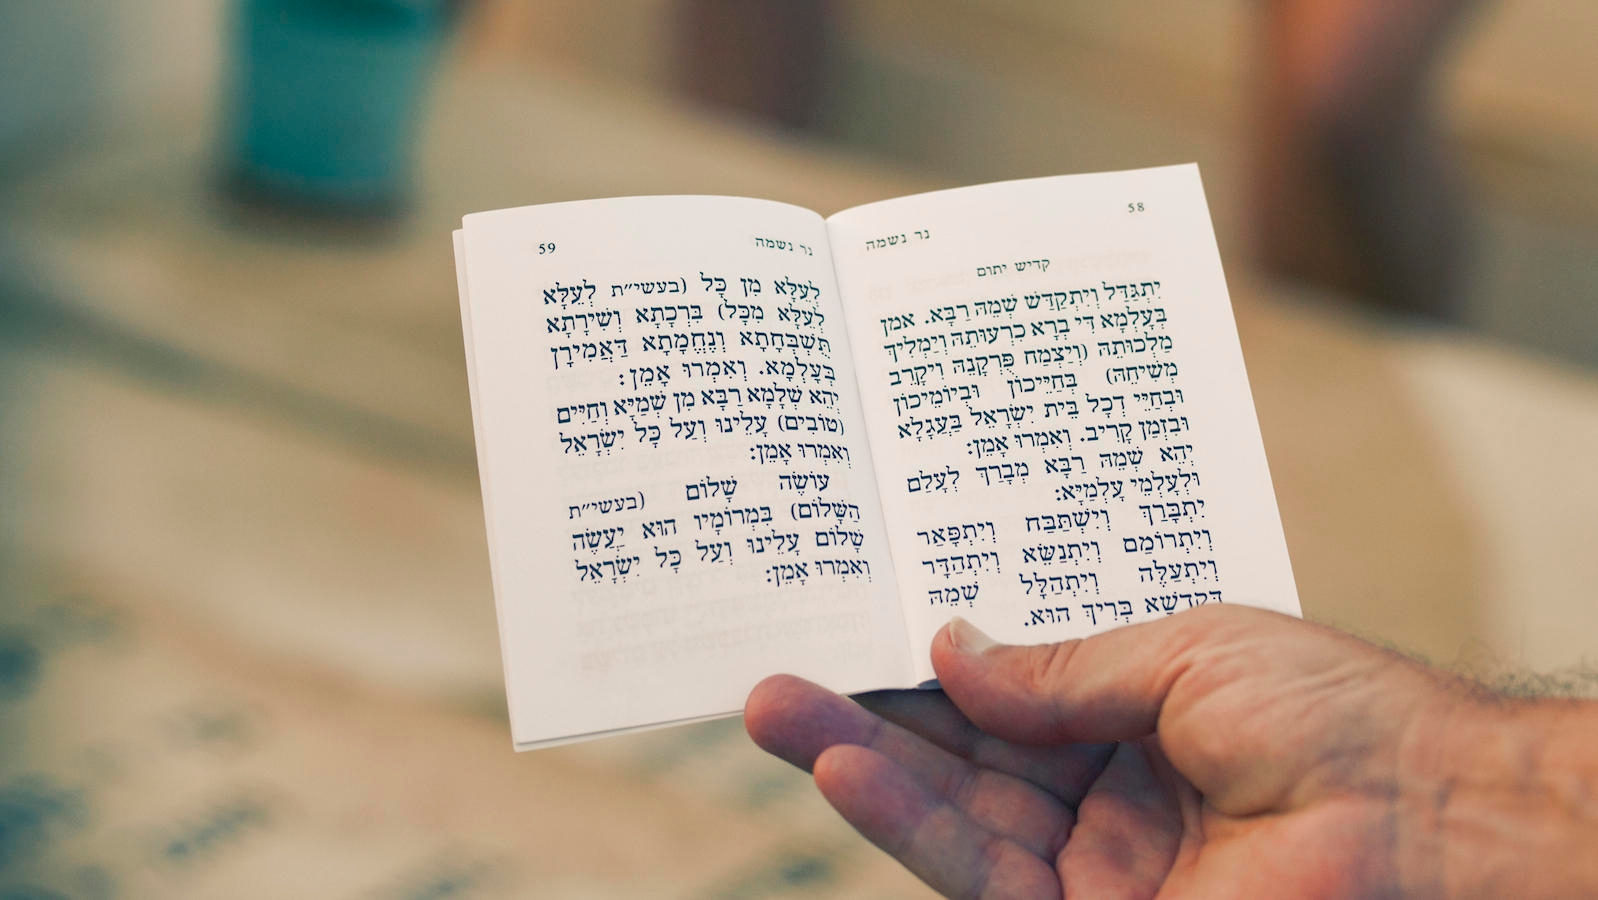 58
נר נשמה
קדיש יתום
יִתְגַּדַּל וְיִתְקַדַּשׁ שְׁמֵהּ רַבָּא. אמן
בְּעָלְמָא דִּי בְרָא כִרְעוּתֵהּ וְיַמְלִיךְ
מַלְכוּתֵהּ (וְיַצְמַח פֻּרְקָנֵהּ וִיקָרֵב
מְשִׁיחֵהּ) בְּחַיֵּיכוֹן וּבְיוֹמֵיכוֹן
וּבְחַיֵּי דְכָל בֵּית יִשְׂרָאֵל בַּעֲגָלָא
וּבִזְמַן קָרִיב. וְאִמְרוּ אָמֵן:
יְהֵא שְׁמֵהּ רַבָּא מְבָרַךְ לְעָלַם
וּלְעָלְמֵי עָלְמַיָּא:
יִתְבָּרַךְ וְיִשְׁתַּבַּח וְיִתְפָּאַר
וְיִתְרוֹמַם וְיִתְנַשֵּׂא וְיִתְהַדָּר
וְיִתְעַלֶּה וְיִתְהַלָּל שְׁמֵהּ
דְּקֻדְשָׁא בְּרִיךְ הוּא.
נר נשמה
59
לְעֵלָּא מִן כָּל (בעשי״ת לְעֵלָּא
לְעֵלָּא מִכָּל) בִּרְכָתָא וְשִׁירָתָא
תֻּשְׁבְּחָתָא וְנֶחֱמָתָא דַּאֲמִירָן
בְּעָלְמָא. וְאִמְרוּ אָמֵן:
יְהֵא שְׁלָמָא רַבָּא מִן שְׁמַיָּא וְחַיִּים
(טוֹבִים) עָלֵינוּ וְעַל כָּל יִשְׂרָאֵל
וְאִמְרוּ אָמֵן:
עוֹשֶׂה שָׁלוֹם (בעשי״ת
הַשָּׁלוֹם) בִּמְרוֹמָיו הוּא יַעֲשֶׂה
שָׁלוֹם עָלֵינוּ וְעַל כָּל יִשְׂרָאֵל
וְאִמְרוּ אָמֵן: